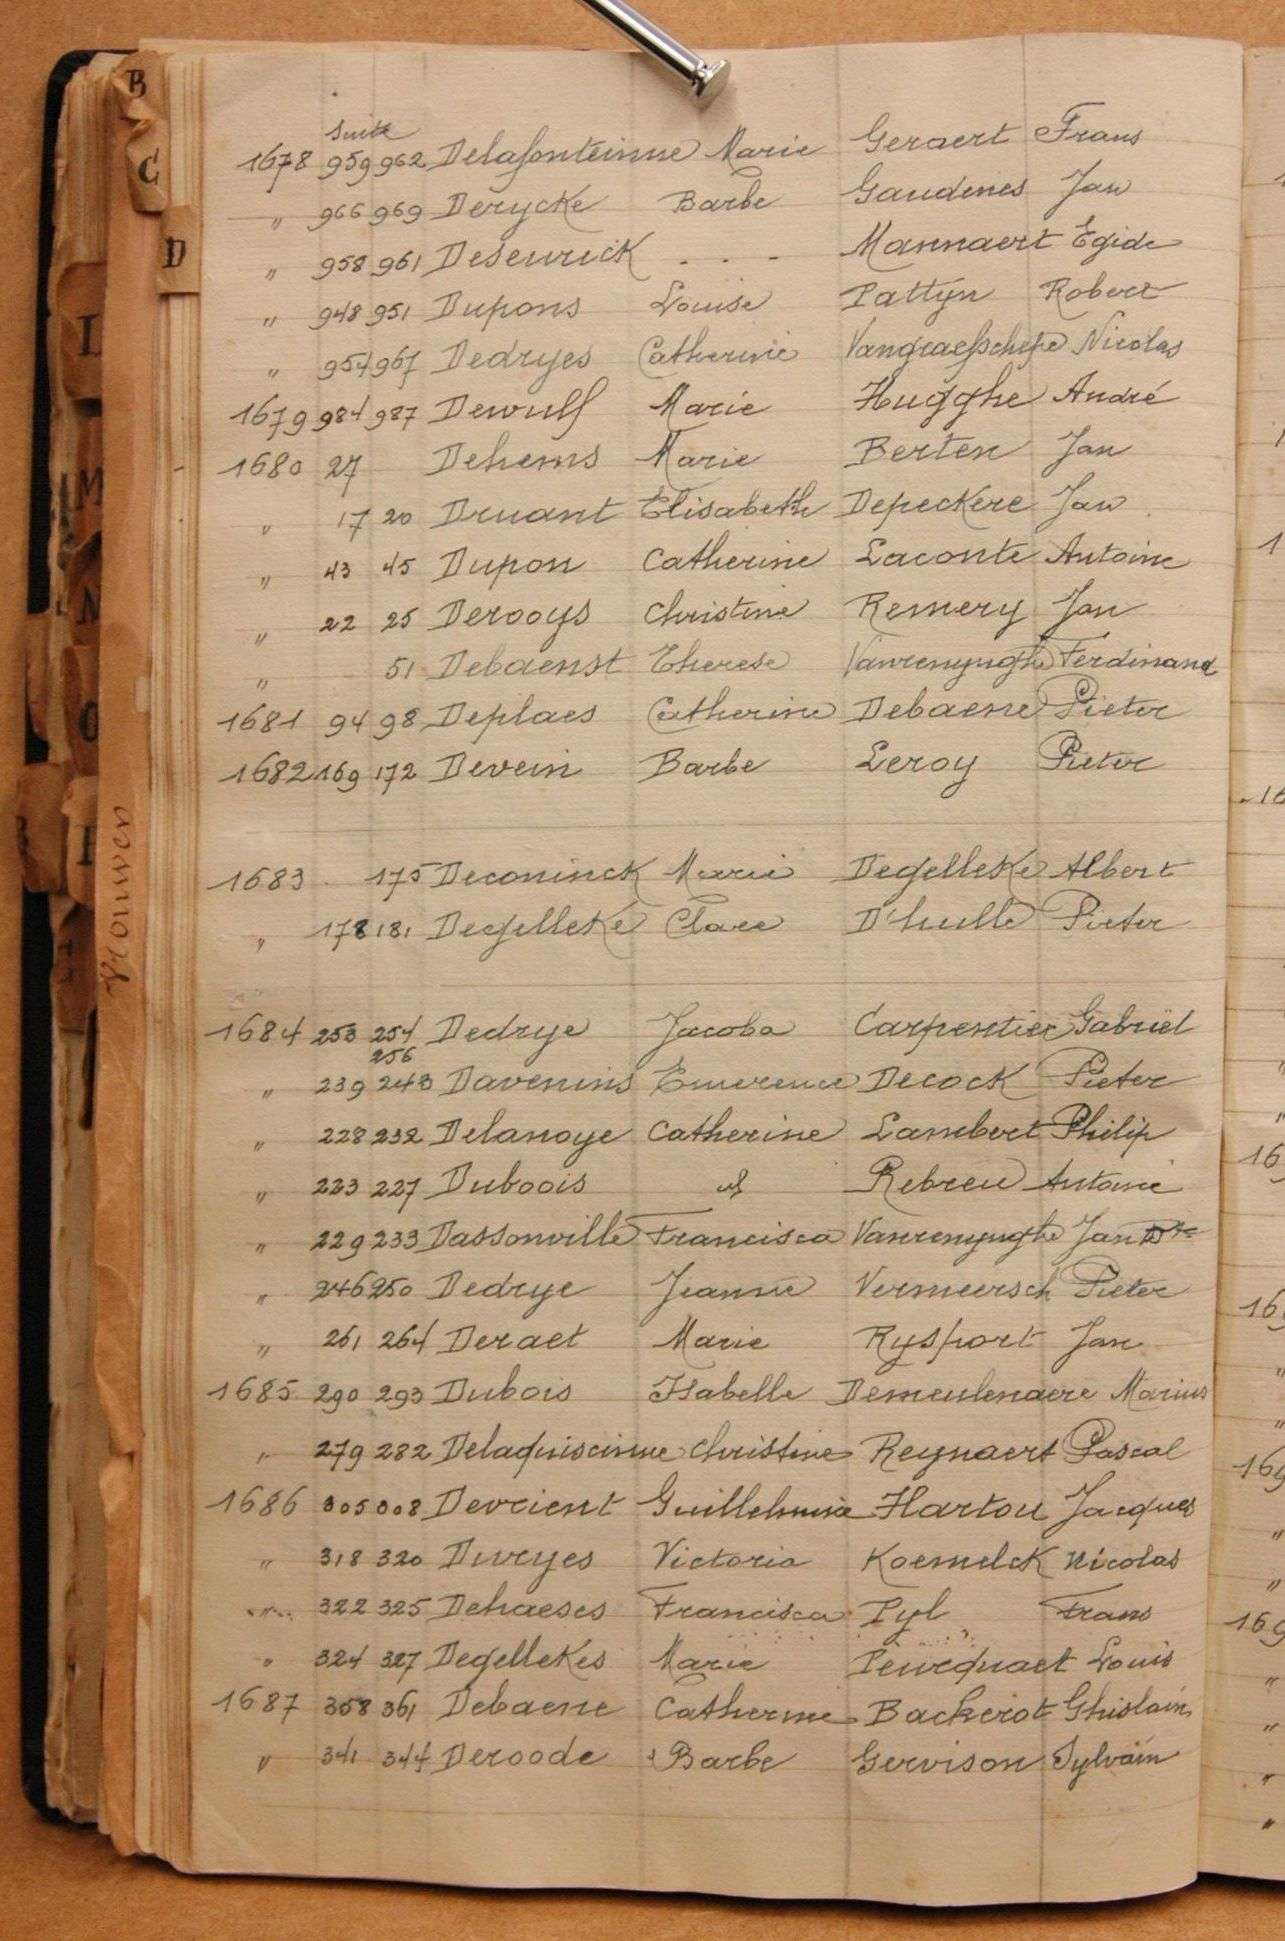 B
C
D
L
M
N
O
Vrouwen
Suite
1678 959 962 Delafonteinne Marie Geraert Frans
" 966 969 Derycke Barbe Gaudenes Jan
" 958 961 Deseurick - - - Mannaert Egide
" 948 951 Dupons Louise Pattyn Robert
" 954 967 Dedryes Catherine Vangraefschepe Nicolas
1679 984 987 Dewulf Marie Hugghe André
1680 27 Dehems Marie Berten Jan
" 17 20 Druant Elisabeth Depeckere Jan
" 43 45 Dupon Catherine Laconte Antoine
" 22 25 Derooys Christine Remery Jan
" 51 Debaenst Therese Vanrenynghe Ferdinand
1681 94 98 Deplaes Catherine Debaene Pieter
1682 169 172 Devein Barbe Leroy Pieter
1683 175 Deconinck Marie Degelleke Albert
" 178 181 Degelleke Clare D'hulle Pieter
1684 253 254 Dedrye Jacoba Carpentier Gabriel
256
" 239 243 Davenins Emerence Decock Pieter
" 228 232 Delanoye Catherine Lambert Philip
" 223 227 Duboois Rebreu Antoine
" 229 233 Dassonville Francisca Vanrenynghe Jan Bte
" 246 250 Dedrye Jeanne Vermeersch Pieter
" 261 264 Deraet Marie Rysport Jan
1685 290 293 Dubois Isabelle Demeulenaere Marius
" 279 282 Delaquiscinne Christine Reynaert Pascal
1686 305 308 Devrient Guillelmine Hartou Jacques
" 318 320 Duryes Victoria Koemelck Nicolas
" 322 325 Dehaeses Francisca Pyl Frans
" 324 327 Degellekes Marie Louis
1687 358 361 Debaene Catherine Backerot Ghislain
" 341 344 Deroode Barbe Gervison Sylvain